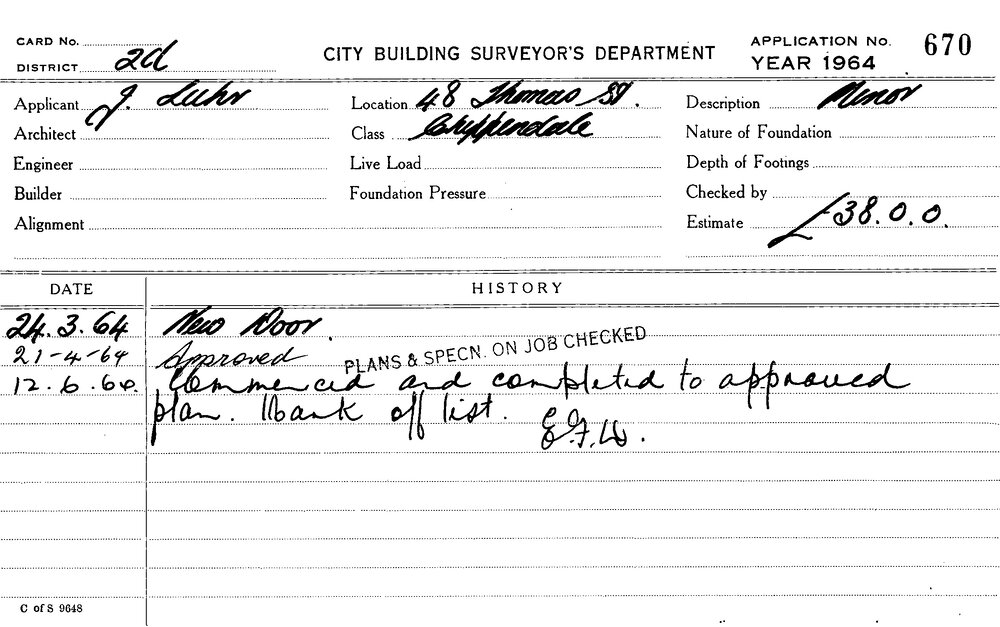 CARD No.
DISTRICT 2d
CITY BUILDING SURVEYOR'S DEPARTMENT
APPLICATION No. 670
YEAR 1964
Applicant J. Luhr
Location 48 Thomas St.
Description Minor
Architect
Class Chippendale
Nature of Foundation
Engineer
Live Load
Depth of Footings
Builder
Foundation Pressure
Checked by
Alignment
Estimate £38.0.0.
DATE HISTORY
24.3.64 New Door.
21-4-64 Approved PLANS & SPECN. ON JOB CHECKED
12.6.64. Commenced and completed to approved
plan. Mark off list.
C of S 9648